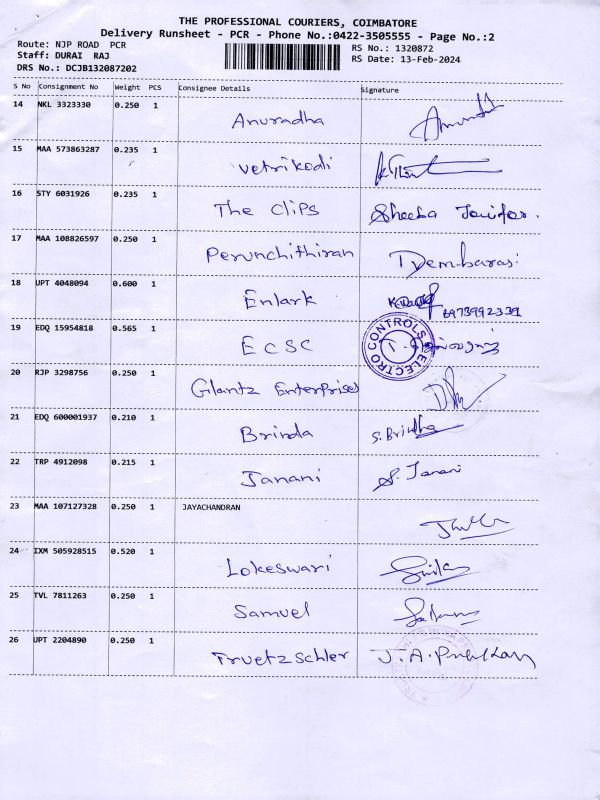 THE PROFESSIONAL COURIERS, COIMBATORE
Delivery Runsheet - PCR - Phone No.:0422-3505555 - Page No.:2
Route: NJP ROAD PCR
RS No.: 1320872
Staff: DURAI RAJ
RS Date: 13-Feb-2024
DRS No.: DCJB132087202
S No Consignment No Weight PCS Consignee Details Signature
14 NKL 3323330 0.250 1 Anuradha
15 MAA 573863287 0.235 1 Vetrikodi
16 STY 6031926 0.235 1 The Clips Sheeba
17 MAA 108826597 0.250 1 Perunchithiran
18 UPT 4048094 0.600 1 Enlark
19 EDQ 15954818 0.565 1 ECSC
ELECTRO CONTROLS
20 RJP 3298756 0.250 1 Glantz Enterprises
21 EDQ 600001937 0.210 1 Brinda S. Brindha
22 TRP 4912098 0.215 1 Janani S. Janani
23 MAA 107127328 0.250 1 JAYACHANDRAN
24 IXM 505928515 0.520 1 Lokeswari
25 TVL 7811263 0.250 1 Samuel
26 UPT 2204890 0.250 1 Truetzschler J. A.